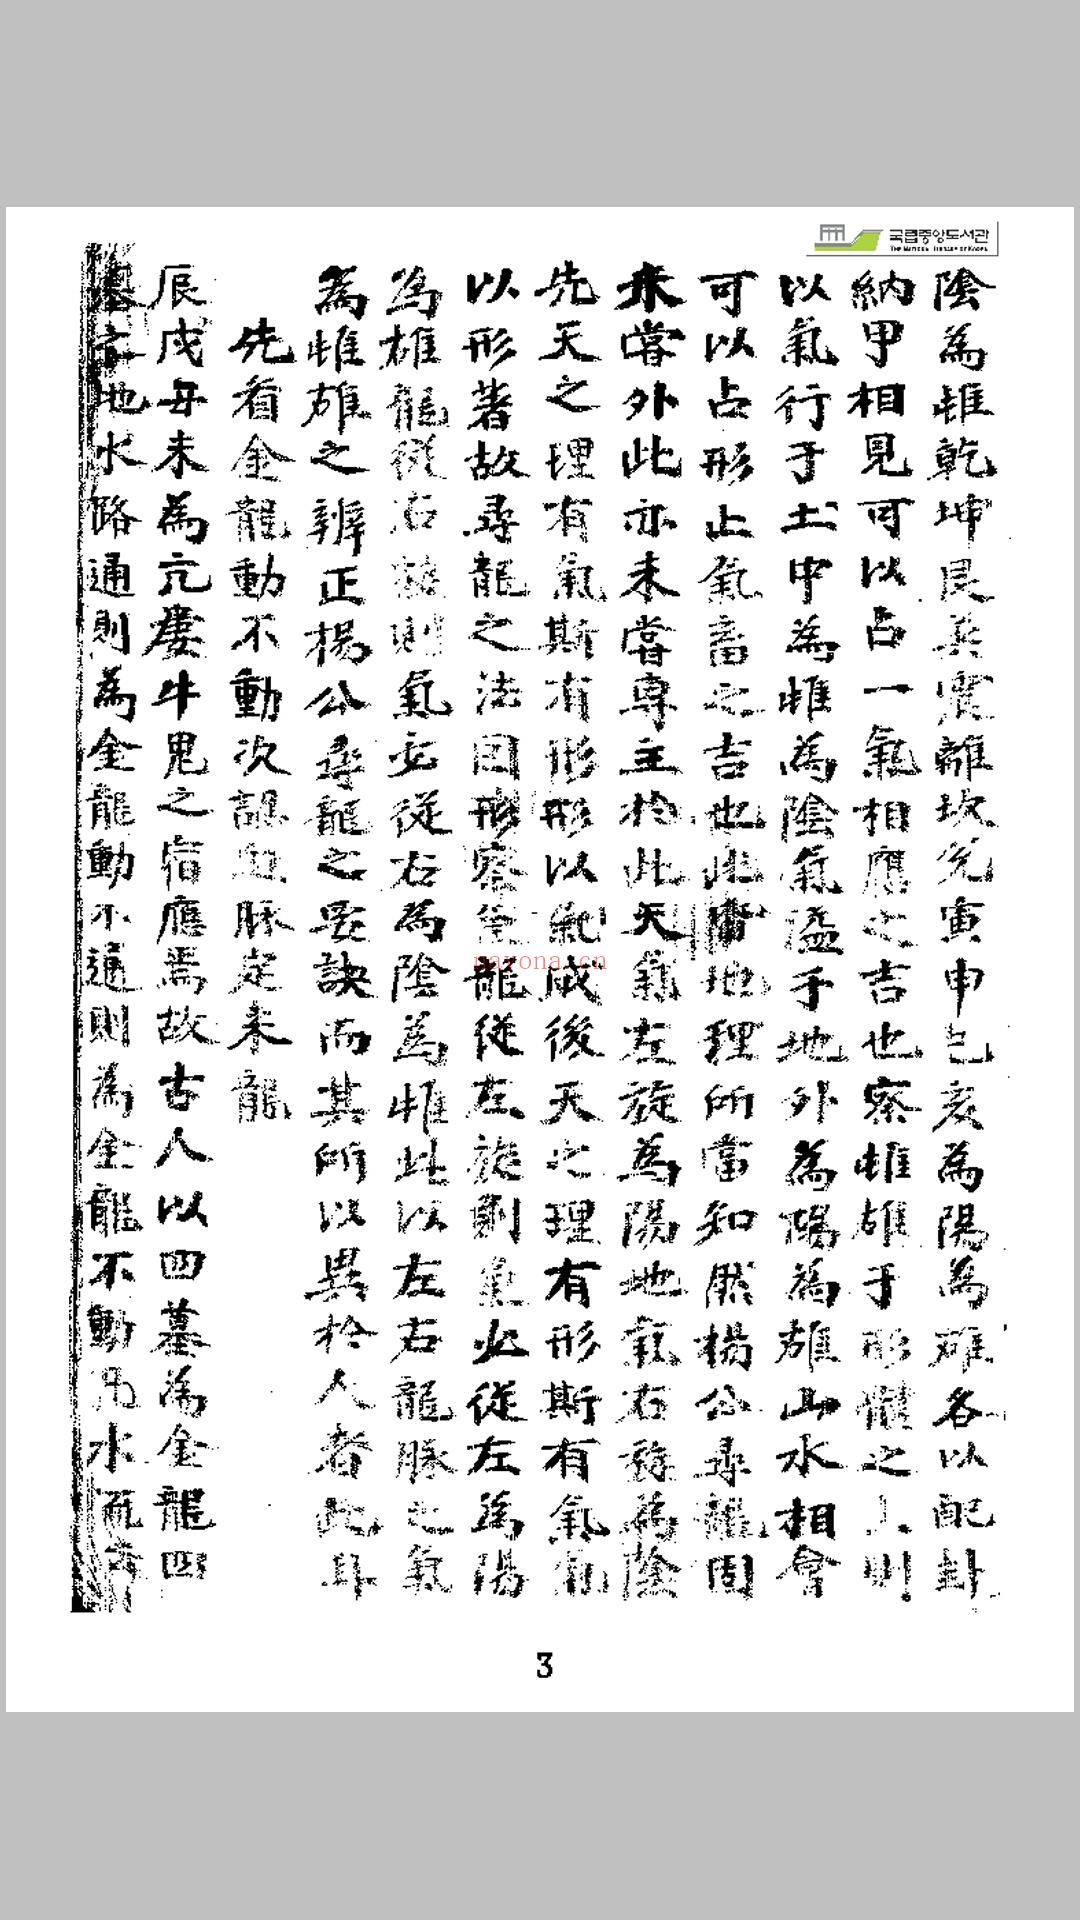 국립중앙도서관
THE NATIONAL LIBRARY OF KOREA
陰為雌乾坤艮巽震離坎兌寅申巳亥為陽為雄各以配卦
納甲相見可以占一氣相應之吉也察雌雄于形體之上則
以氣行于土中為雌為陰氣溢于地外為陽為雄山水相會
可以占形止氣畜之吉也此皆地理所當知然楊公尋龍固
未嘗外此亦未嘗專主於此天氣左旋為陽地氣右轉為陰
先天之理有氣斯有形形以氣成後天之理有形斯有氣氣
以形著故尋龍之法因形察氣龍從左旋則氣必從左為陽
為雄龍從右轉則氣必從右為陰為雌此以左右龍脉之氣
為雌雄之辨正楊公尋龍之要訣而其所以異於人者此耳
先看金龍動不動次認血脉定來龍
辰戌丑未為亢婁牛鬼之宿應焉故古人以四墓為金龍四
墓之地水路通則為金龍動不通則為金龍不動凡水流
nayona.cn
3